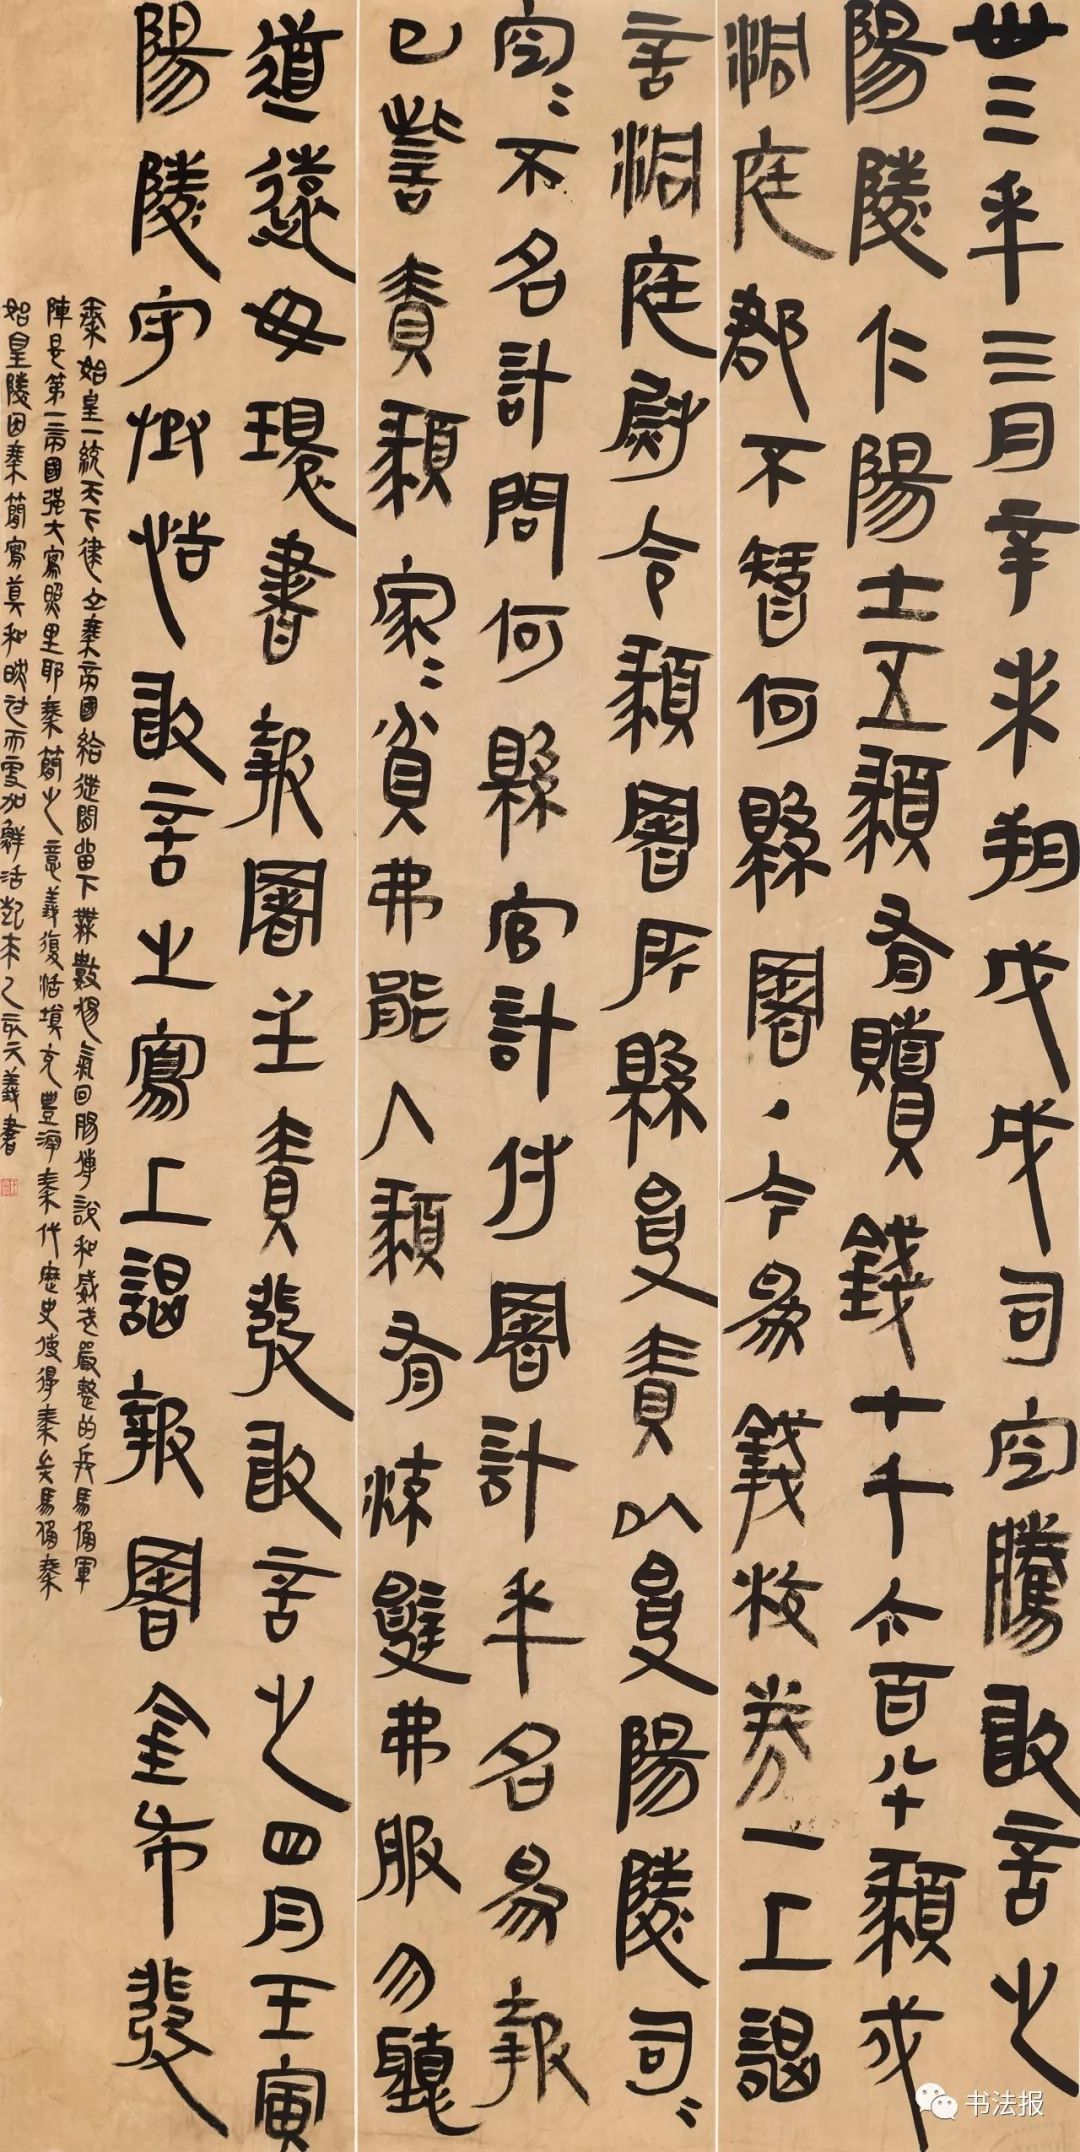 卅三年三月辛未朔戊戌司空騰敢言之
陽陵仁陽士五頯有贖錢十千六百八十頯戍
洞庭郡不智何縣署・今為錢校券一上謁
言洞庭尉令頯署所縣受責以受陽陵司〻
空〻不名計問何縣官計付署計年名為報
已訾責頯家〻貧弗能入頯有流辤弗服勿聽
道遠毋環書報署主責發敢言之四月壬寅
陽陵守丞恬敢言之寫上謁報署金布發
秦始皇一統天下律立秦帝國給世間留下無數傷氣回腸傳說和威武嚴整的兵馬俑軍
陣是第一帝國強大寫照里耶秦簡之意義復活填充豐滿秦代歷史使得秦兵馬俑秦
始皇陵因秦簡寫真和映討而更加鮮活歲末乙亥天義書
书法报